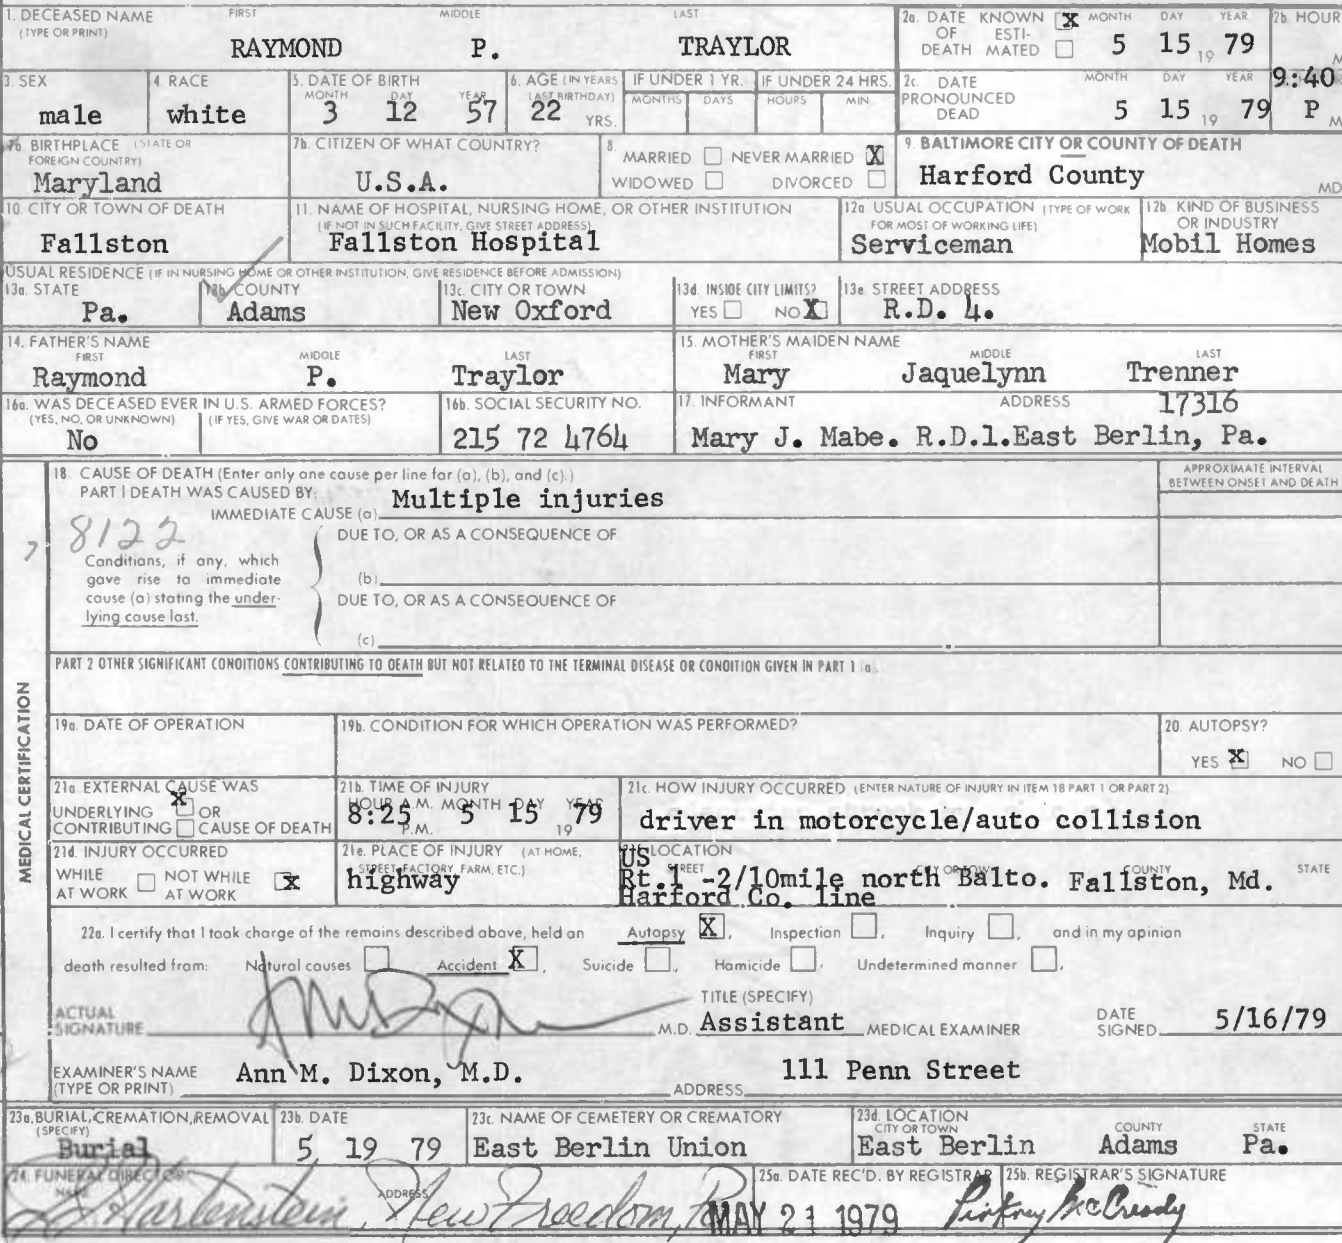 1. DECEASED NAME FIRST MIDDLE LAST
(TYPE OR PRINT)
RAYMOND P. TRAYLOR
2a. DATE KNOWN X MONTH DAY YEAR
OF ESTI-
DEATH MATED 5 15 19 79
2b. HOUR
M
3. SEX
male
4. RACE
white
5. DATE OF BIRTH
MONTH DAY YEAR
3 12 57
6. AGE (IN YEARS
LAST BIRTHDAY)
22 YRS.
IF UNDER 1 YR.
MONTHS DAYS
IF UNDER 24 HRS.
HOURS MIN
2c. DATE MONTH DAY YEAR
PRONOUNCED
DEAD 5 15 19 79
9:40
P M
BIRTHPLACE (STATE OR
FOREIGN COUNTRY)
Maryland
7b. CITIZEN OF WHAT COUNTRY?
U.S.A.
8.
MARRIED NEVER MARRIED X
WIDOWED DIVORCED
9. BALTIMORE CITY OR COUNTY OF DEATH
Harford County MD
10. CITY OR TOWN OF DEATH
Fallston
11. NAME OF HOSPITAL, NURSING HOME, OR OTHER INSTITUTION
(IF NOT IN SUCH FACILITY, GIVE STREET ADDRESS)
Fallston Hospital
12a USUAL OCCUPATION (TYPE OF WORK
FOR MOST OF WORKING LIFE)
Serviceman
12b. KIND OF BUSINESS
OR INDUSTRY
Mobil Homes
USUAL RESIDENCE (IF IN NURSING HOME OR OTHER INSTITUTION, GIVE RESIDENCE BEFORE ADMISSION)
13a. STATE
Pa.
13b. COUNTY
Adams
13c. CITY OR TOWN
New Oxford
13d. INSIDE CITY LIMITS?
YES NO X
13e STREET ADDRESS
R.D. 4.
14. FATHER'S NAME
FIRST MIDDLE LAST
Raymond P. Traylor
15. MOTHER'S MAIDEN NAME
FIRST MIDDLE LAST
Mary Jaquelynn Trenner
16a. WAS DECEASED EVER IN U.S. ARMED FORCES?
(YES, NO, OR UNKNOWN) (IF YES, GIVE WAR OR DATES)
No
16b. SOCIAL SECURITY NO.
215 72 4764
17. INFORMANT ADDRESS 17316
Mary J. Mabe. R.D.1.East Berlin, Pa.
MEDICAL CERTIFICATION
18. CAUSE OF DEATH (Enter only one cause per line for (a), (b), and (c).)
PART I DEATH WAS CAUSED BY:
IMMEDIATE CAUSE (a) Multiple injuries
APPROXIMATE INTERVAL
BETWEEN ONSET AND DEATH
8122
DUE TO, OR AS A CONSEQUENCE OF
Conditions, if any, which
gave rise to immediate
cause (a) stating the under-
lying cause last.
(b)
DUE TO, OR AS A CONSEQUENCE OF
(c)
PART 2 OTHER SIGNIFICANT CONDITIONS CONTRIBUTING TO DEATH BUT NOT RELATED TO THE TERMINAL DISEASE OR CONDITION GIVEN IN PART 1 (a).
19a. DATE OF OPERATION
19b. CONDITION FOR WHICH OPERATION WAS PERFORMED?
20. AUTOPSY?
YES X NO
21a EXTERNAL CAUSE WAS
UNDERLYING X OR
CONTRIBUTING CAUSE OF DEATH
21b. TIME OF INJURY
HOUR A.M. MONTH DAY YEAR
8:25 P.M. 5 15 19 79
21c. HOW INJURY OCCURRED (ENTER NATURE OF INJURY IN ITEM 18 PART 1 OR PART 2)
driver in motorcycle/auto collision
21d. INJURY OCCURRED
WHILE NOT WHILE
AT WORK AT WORK X
21e. PLACE OF INJURY (AT HOME,
STREET, FACTORY, FARM, ETC.)
highway
LOCATION
STREET CITY OR TOWN COUNTY STATE
US
Rt.1 -2/10mile north Balto. Fallston, Md.
Harford Co. line
22a. I certify that I took charge of the remains described above, held an Autopsy X, Inspection , Inquiry , and in my opinion
death resulted from: Natural causes Accident X, Suicide , Homicide , Undetermined manner .
ACTUAL
SIGNATURE M.D.
TITLE (SPECIFY)
Assistant MEDICAL EXAMINER
DATE
SIGNED 5/16/79
EXAMINER'S NAME
(TYPE OR PRINT) Ann M. Dixon, M.D.
ADDRESS 111 Penn Street
23a. BURIAL, CREMATION, REMOVAL
(SPECIFY)
Burial
23b. DATE
5 19 79
23c. NAME OF CEMETERY OR CREMATORY
East Berlin Union
23d. LOCATION
CITY OR TOWN COUNTY STATE
East Berlin Adams Pa.
24. FUNERAL DIRECTOR
NAME ADDRESS
Hartenstein, New Freedom, Pa
25a. DATE REC'D. BY REGISTRAR
MAY 21 1979
25b. REGISTRAR'S SIGNATURE
McCready